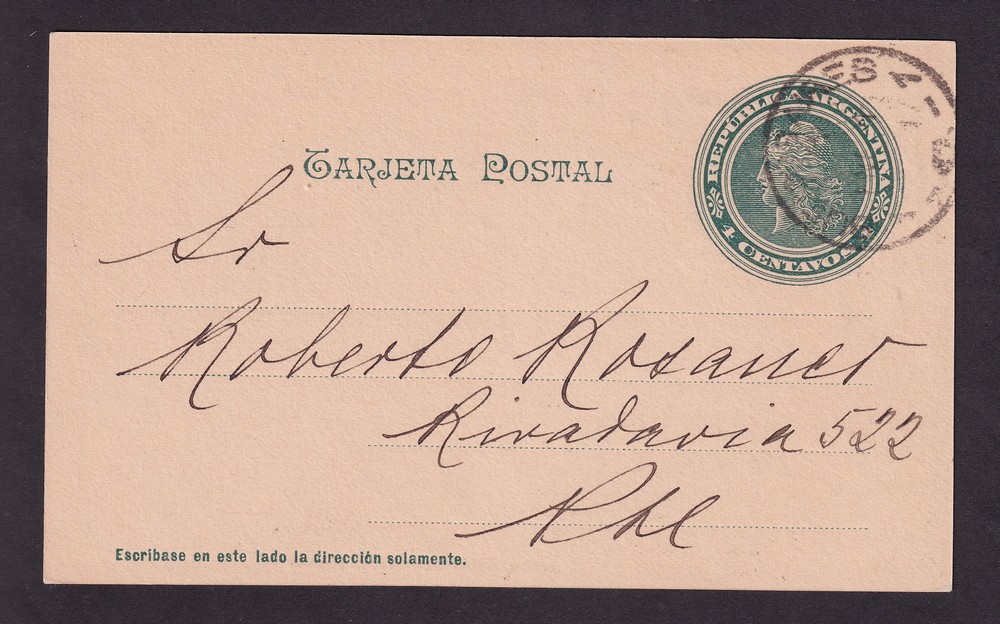 TARJETA POSTAL
REPÚBLICA ARGENTINA
4 CENTAVOS 4
Sr
Roberto Rosauer
Rivadavia 522
Escríbase en este lado la dirección solamente.